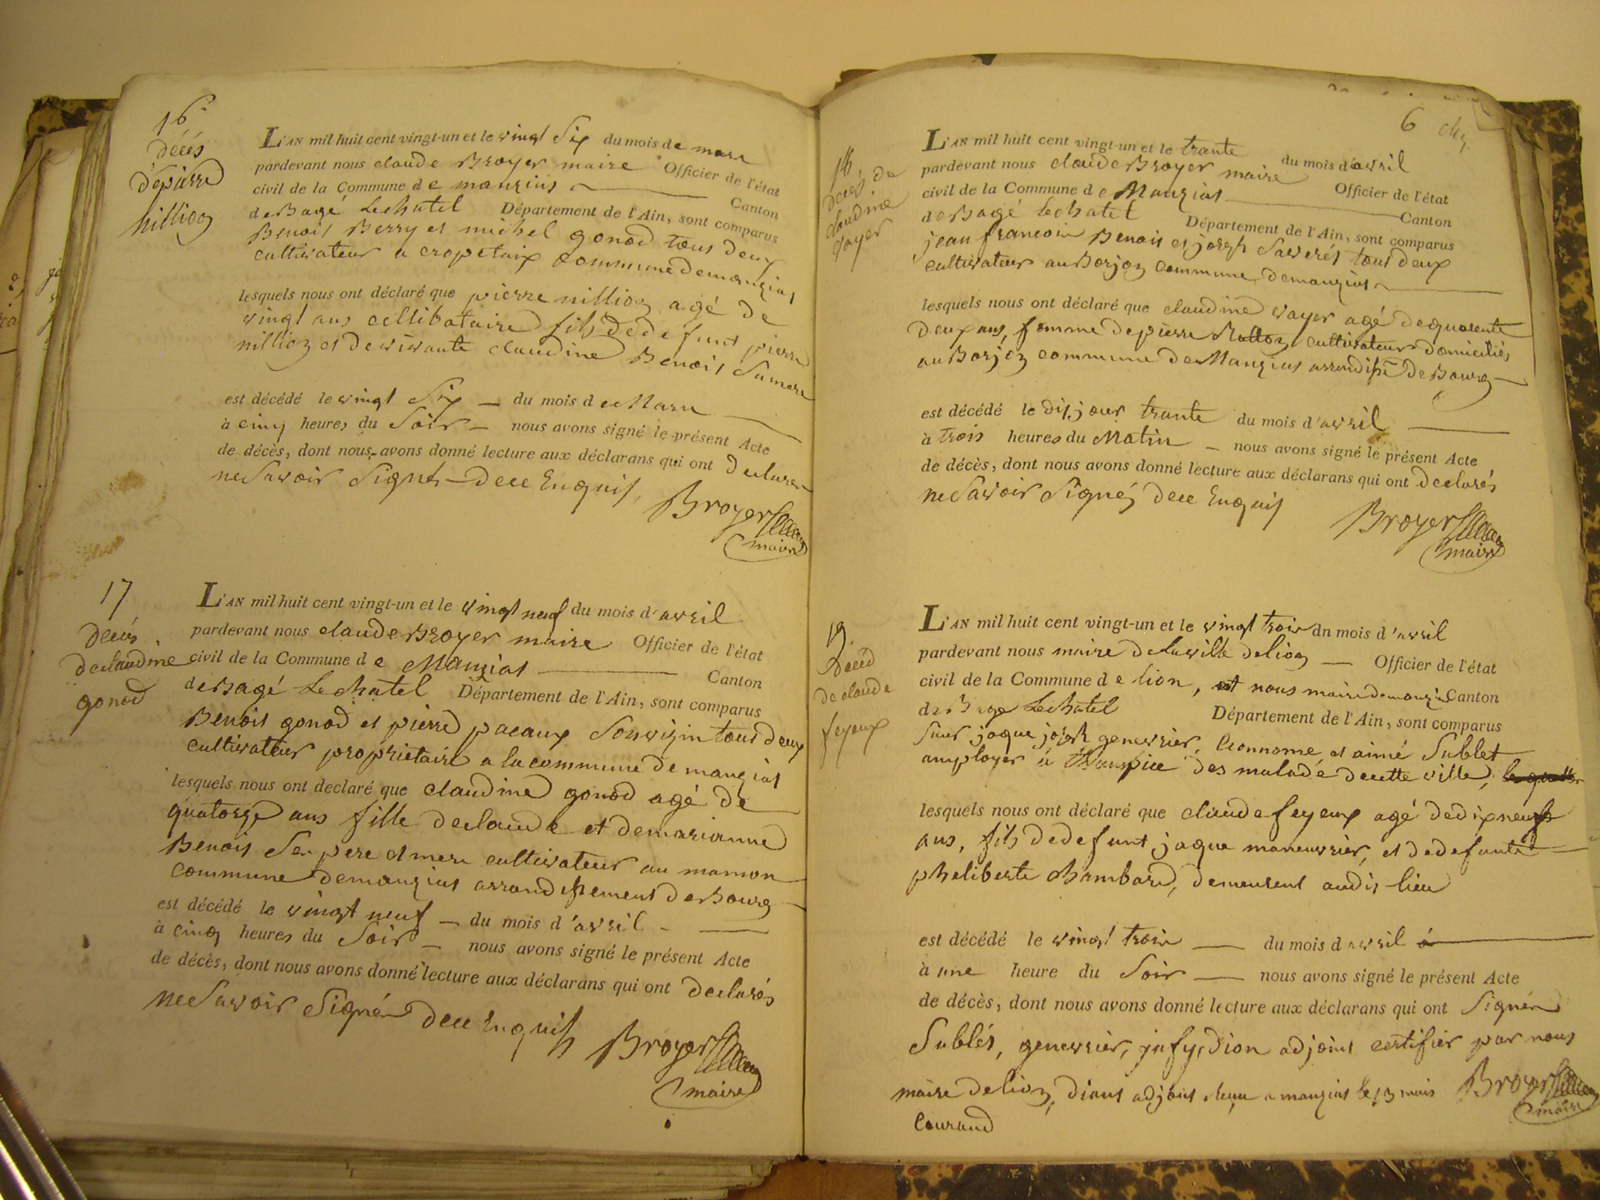 16
décés
de pierre
nillion
L'AN mil huit cent vingt-un et le vingt Six du mois de mars
pardevant nous claude Broyer maire Officier de l'état
civil de la Commune de manzias Canton
de Bagé Lechatel Département de l'Ain, sont comparus
Benois Berry et michel gonod tous deux
cultivateur a commune de manzias
lesquels nous ont déclaré que pierre nillion agé de
vingt ans cellibataire fils de defunt pierre
nillion et de vivante claudine Benois Sa mere
est décédé le vingt Six du mois de Mars
à cinq heures du Soir nous avons signé le présent Acte
de décès, dont nous avons donné lecture aux déclarans qui ont declarer
ne Savoir Signer dece Enquis
Broyer
maire
17
decés
de claudine
gonod
L'AN mil huit cent vingt-un et le vingt neuf du mois d'avril
pardevant nous claude Broyer maire Officier de l'état
civil de la Commune de Manzias Canton
de Bagé Lechatel Département de l'Ain, sont comparus
Benois gonod et pierre pacaux tous deux
cultivateur proprietaire a la commune de manzias
lesquels nous ont declaré que claudine gonod agé de
quatorze ans fille de claude et de marianne
Benois Ses pere et mere cultivateur au mamon
commune de manzias arrondissement de Bourg
est décédé le vingt neuf du mois d'avril
à cinq heures du Soir nous avons signé le présent Acte
de décès, dont nous avons donné lecture aux déclarans qui ont declarés
ne Savoir Signé dece Enquis
Broyer
maire
6
décés de
claudine
voyer
L'AN mil huit cent vingt-un et le trante du mois d'avril
pardevant nous claude Broyer maire Officier de l'état
civil de la Commune de Manzias Canton
de Bagé Lechatel Département de l'Ain, sont comparus
jean francois Benois et joseph tous deux
cultivateur au Borjon commune de manzias
lesquels nous ont déclaré que claudine voyer agé de quarente
deux ans, femme de pierre cultivateur domiciliés
au Borjon commune de Manzias de Bourg
est décédé le dis jour trante du mois d'avril
à trois heures du Matin nous avons signé le présent Acte
de décès, dont nous avons donné lecture aux déclarans qui ont declarés
ne Savoir Signé dece Enquis
Broyer
maire
19
Décéd
de claude
feyeux
L'AN mil huit cent vingt-un et le vingt trois du mois d'avril
pardevant nous maire de la ville de lion Officier de l'état
civil de la Commune de lion, et nous maire de manzias Canton
de Bage Lechatel Département de l'Ain, sont comparus
Sieur jaque joseph genevrier, et aimé Sublet
amployer à des malade de cette ville,
lesquels nous ont déclaré que claude feyeux agé de dix neuf
ans, fils de defunt jaque maneuvrier, et de defunte
pheliberte chambard, demeurent audis lieu
est décédé le vingt trois du mois d'avril
à une heure du Soir nous avons signé le présent Acte
de décès, dont nous avons donné lecture aux déclarans qui ont Signér
Sublés, genevrier, adjoint certifier par nous
maire de lion, adjoint a manzias le 13 mais
Courand
Broyer
maire